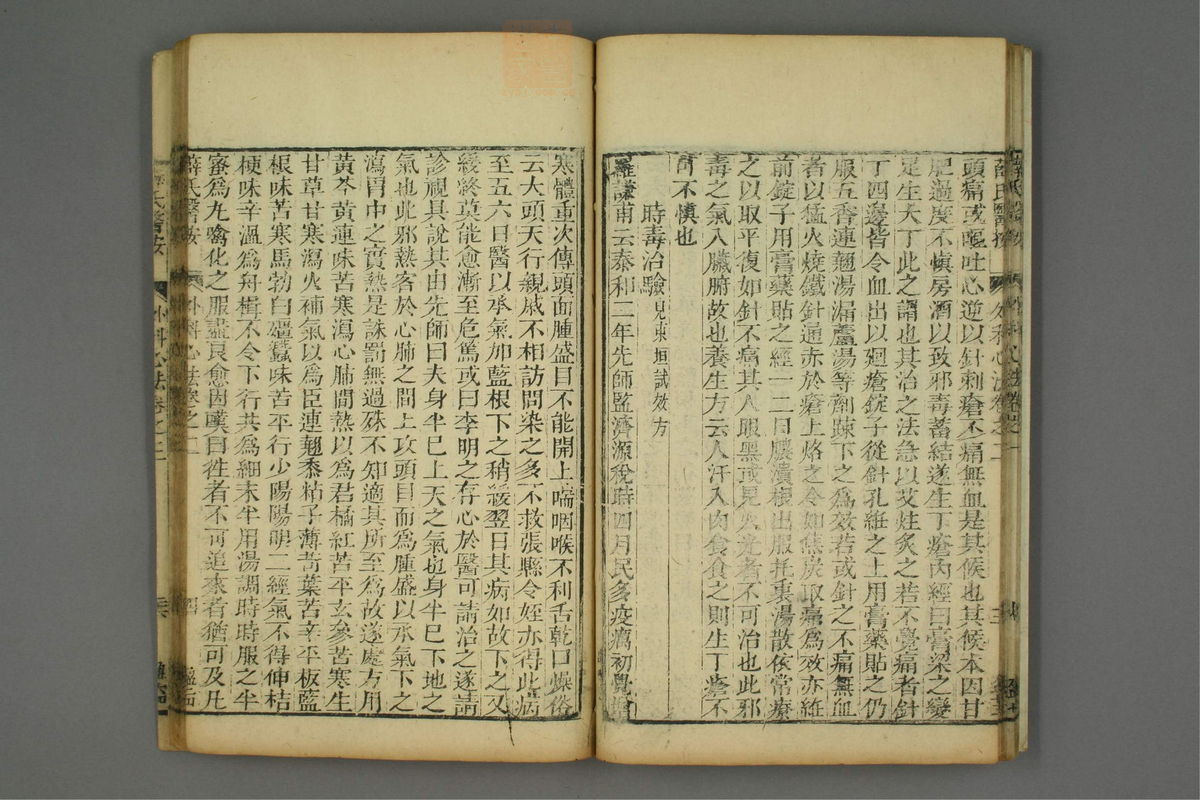 薛氏醫按
外科心法卷之二
頭痛或嘔吐心逆以針刺瘡不痛無血是其候也其候本因甘
肥過度不慎房酒以致邪毒蓄結遂生丁瘡內經曰膏粱之變
足生大丁此之謂也其治之法急以艾炷灸之若不覺痛者針
丁四邊皆令血出以廻瘡錠子從針孔紝之上用膏藥貼之仍
服五香連翹湯漏蘆湯等劑踈下之為效若或針之不痛無血
者以猛火燒鐵針通赤於瘡上烙之令如焦炭取痛為效亦紝
前錠子用膏藥貼之經一二日膿潰根出服托裏湯散依常療
之以取平復如針不痛其人眼黑或見火光者不可治也此邪
毒之氣入臟腑故也養生方云人汗入肉食食之則生丁瘡不
可不慎也
時毒治驗見東垣試效方
羅謙甫云泰和二年先師監濟源稅時四月民多疫癘初覺憎
寒體重次傳頭面腫盛目不能開上喘咽喉不利舌乾口燥俗
云大頭天行親戚不相訪問染之多不救張縣令姪亦得此病
至五六日醫以承氣加藍根下之稍緩翌日其病如故下之又
緩終莫能愈漸至危篤或曰李明之存心於醫可請治之遂請
診視具說其由先師曰夫身半已上天之氣也身半已下地之
氣也此邪熱客於心肺之間上攻頭目而為腫盛以承氣下之
瀉胃中之實熱是誅罰無過殊不知適其所至為故遂處方用
黃芩黃連味苦寒瀉心肺間熱以為君橘紅苦平玄參苦寒生
甘草甘寒瀉火補氣以為臣連翹黍粘子薄荷葉苦辛平板藍
根味苦寒馬勃白殭蠶味苦平行少陽陽明二經氣不得伸桔
梗味辛溫為舟楫不令下行共為細末半用湯調時時服之半
蜜為丸噙化之服盡良愈因嘆曰徃者不可追來者猶可及凡
薛氏醫按
外科心法卷之二